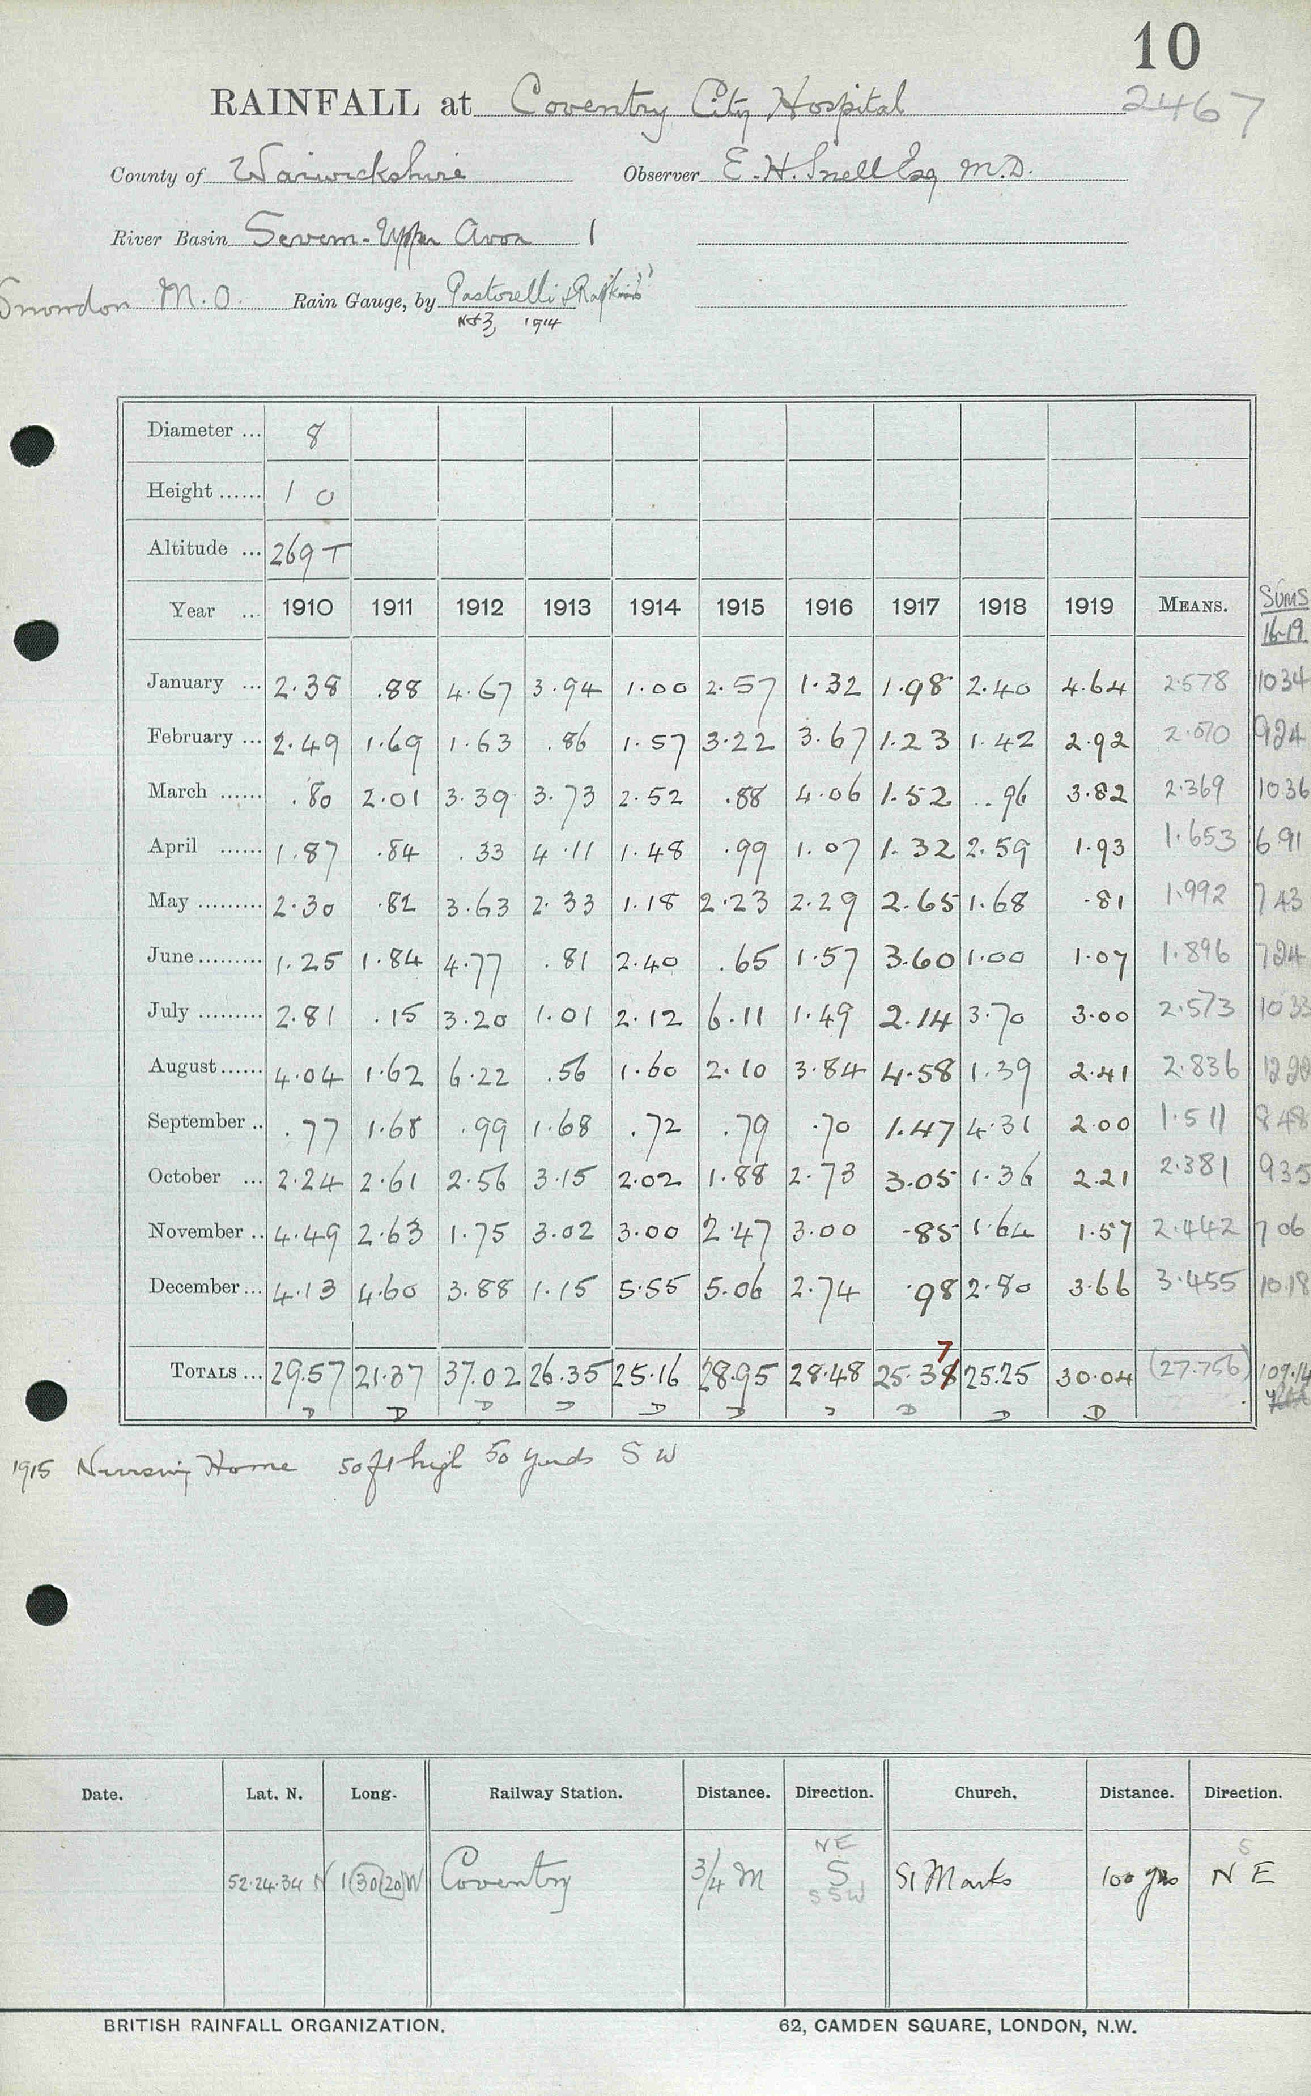 10
RAINFALL at Coventry City Hospital 2467
County of Warwickshire Observer E. H. Snell Esq M.D.
River Basin Severn - Upper Avon 1
Snowdon M.O. Rain Gauge, by Pastorelli & Rapkins
1914
Diameter ... 8
Height ...... 1 0
Altitude ... 269 T
Year ... 1910 1911 1912 1913 1914 1915 1916 1917 1918 1919 MEANS. SUMS
16-19
January ... 2.38 .88 4.67 3.94 1.00 2.57 1.32 1.98 2.40 4.64 2.578 1034
February ... 2.49 1.69 1.63 .86 1.57 3.22 3.67 1.23 1.42 2.92 2.070 924
March ...... .80 2.01 3.39 3.73 2.52 .88 4.06 1.52 .96 3.82 2.369 1036
April ...... 1.87 .84 .33 4.11 1.48 .99 1.07 1.32 2.59 1.93 1.653 691
May ......... 2.30 .82 3.63 2.33 1.18 2.23 2.29 2.65 1.68 .81 1.992 743
June ......... 1.25 1.84 4.77 .81 2.40 .65 1.57 3.60 1.00 1.07 1.896 724
July ......... 2.81 .15 3.20 1.01 2.12 6.11 1.49 2.14 3.70 3.00 2.573 1033
August ...... 4.04 1.62 6.22 .56 1.60 2.10 3.84 4.58 1.39 2.41 2.836
September .. .77 1.68 .99 1.68 .72 .79 .70 1.47 4.31 2.00 1.511 848
October ... 2.24 2.61 2.56 3.15 2.02 1.88 2.73 3.05 1.36 2.21 2.381 935
November .. 4.49 2.63 1.75 3.02 3.00 2.47 3.00 .85 1.64 1.57 2.442 706
December ... 4.13 4.60 3.88 1.15 5.55 5.06 2.74 .98 2.80 3.66 3.455 1018
7
TOTALS ... 29.57 21.37 37.02 26.35 25.16 28.95 28.48 25.38 25.25 30.04 (27.756) 109.14
D D D D D D D D D D
1915 Nursing Home 50 ft high 50 yards S W
Date. Lat. N. Long. Railway Station. Distance. Direction. Church. Distance. Direction.
NE S
52.24.34 N 1 30 20 W Coventry 3/4 M S St Marks 100 yds N E
SSW
BRITISH RAINFALL ORGANIZATION. 62, CAMDEN SQUARE, LONDON, N.W.